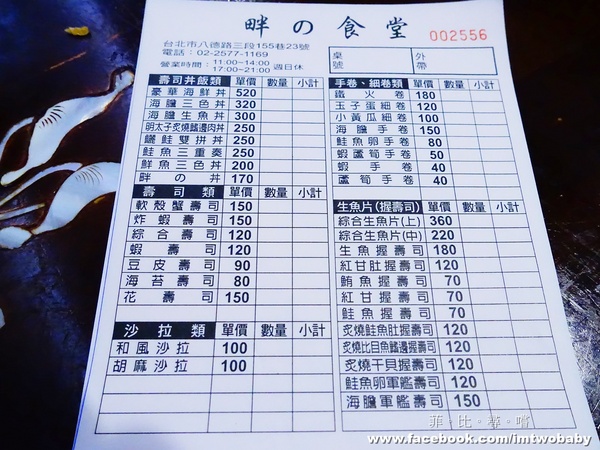 畔の食堂
002556
台北市八德路三段155巷23號
電話：02-2577-1169
營業時間：11:00~14:00
17:00~21:00 週日休
桌號
外帶
壽司丼飯類 單價 數量 小計
豪華海鮮丼 520
海膽三色丼 320
海膽生魚丼 300
明太子炙燒鱔邊肉丼 250
鱲鮭雙拼丼 250
鮭魚三重奏 250
鮮魚三色丼 200
畔の丼 170
壽司類 單價 數量 小計
軟殼蟹壽司 150
炸蝦壽司 150
綜合壽司 120
蝦壽司 120
豆皮壽司 90
海苔壽司 80
花壽司 150
沙拉類 單價 數量 小計
和風沙拉 100
胡麻沙拉 100
手卷、細卷類 單價 數量 小計
鐵火卷 180
玉子蛋細卷 120
小黃瓜細卷 100
海膽手卷 150
鮭魚卵手卷 80
蝦蘆筍手卷 50
蝦手卷 40
蘆筍手卷 40
生魚片(握壽司) 單價 數量 小計
綜合生魚片(上) 360
綜合生魚片(中) 220
生魚握壽司 180
紅甘肚握壽司 120
鮪魚握壽司 70
紅甘握壽司 70
鮭魚握壽司 70
炙燒鮭魚肚握壽司 120
炙燒比目魚鰭邊握壽司 120
炙燒干貝握壽司 120
鮭魚卵軍艦壽司 120
海膽軍艦壽司 150
菲。比。尋。嚐
www.facebook.com/imtwobaby